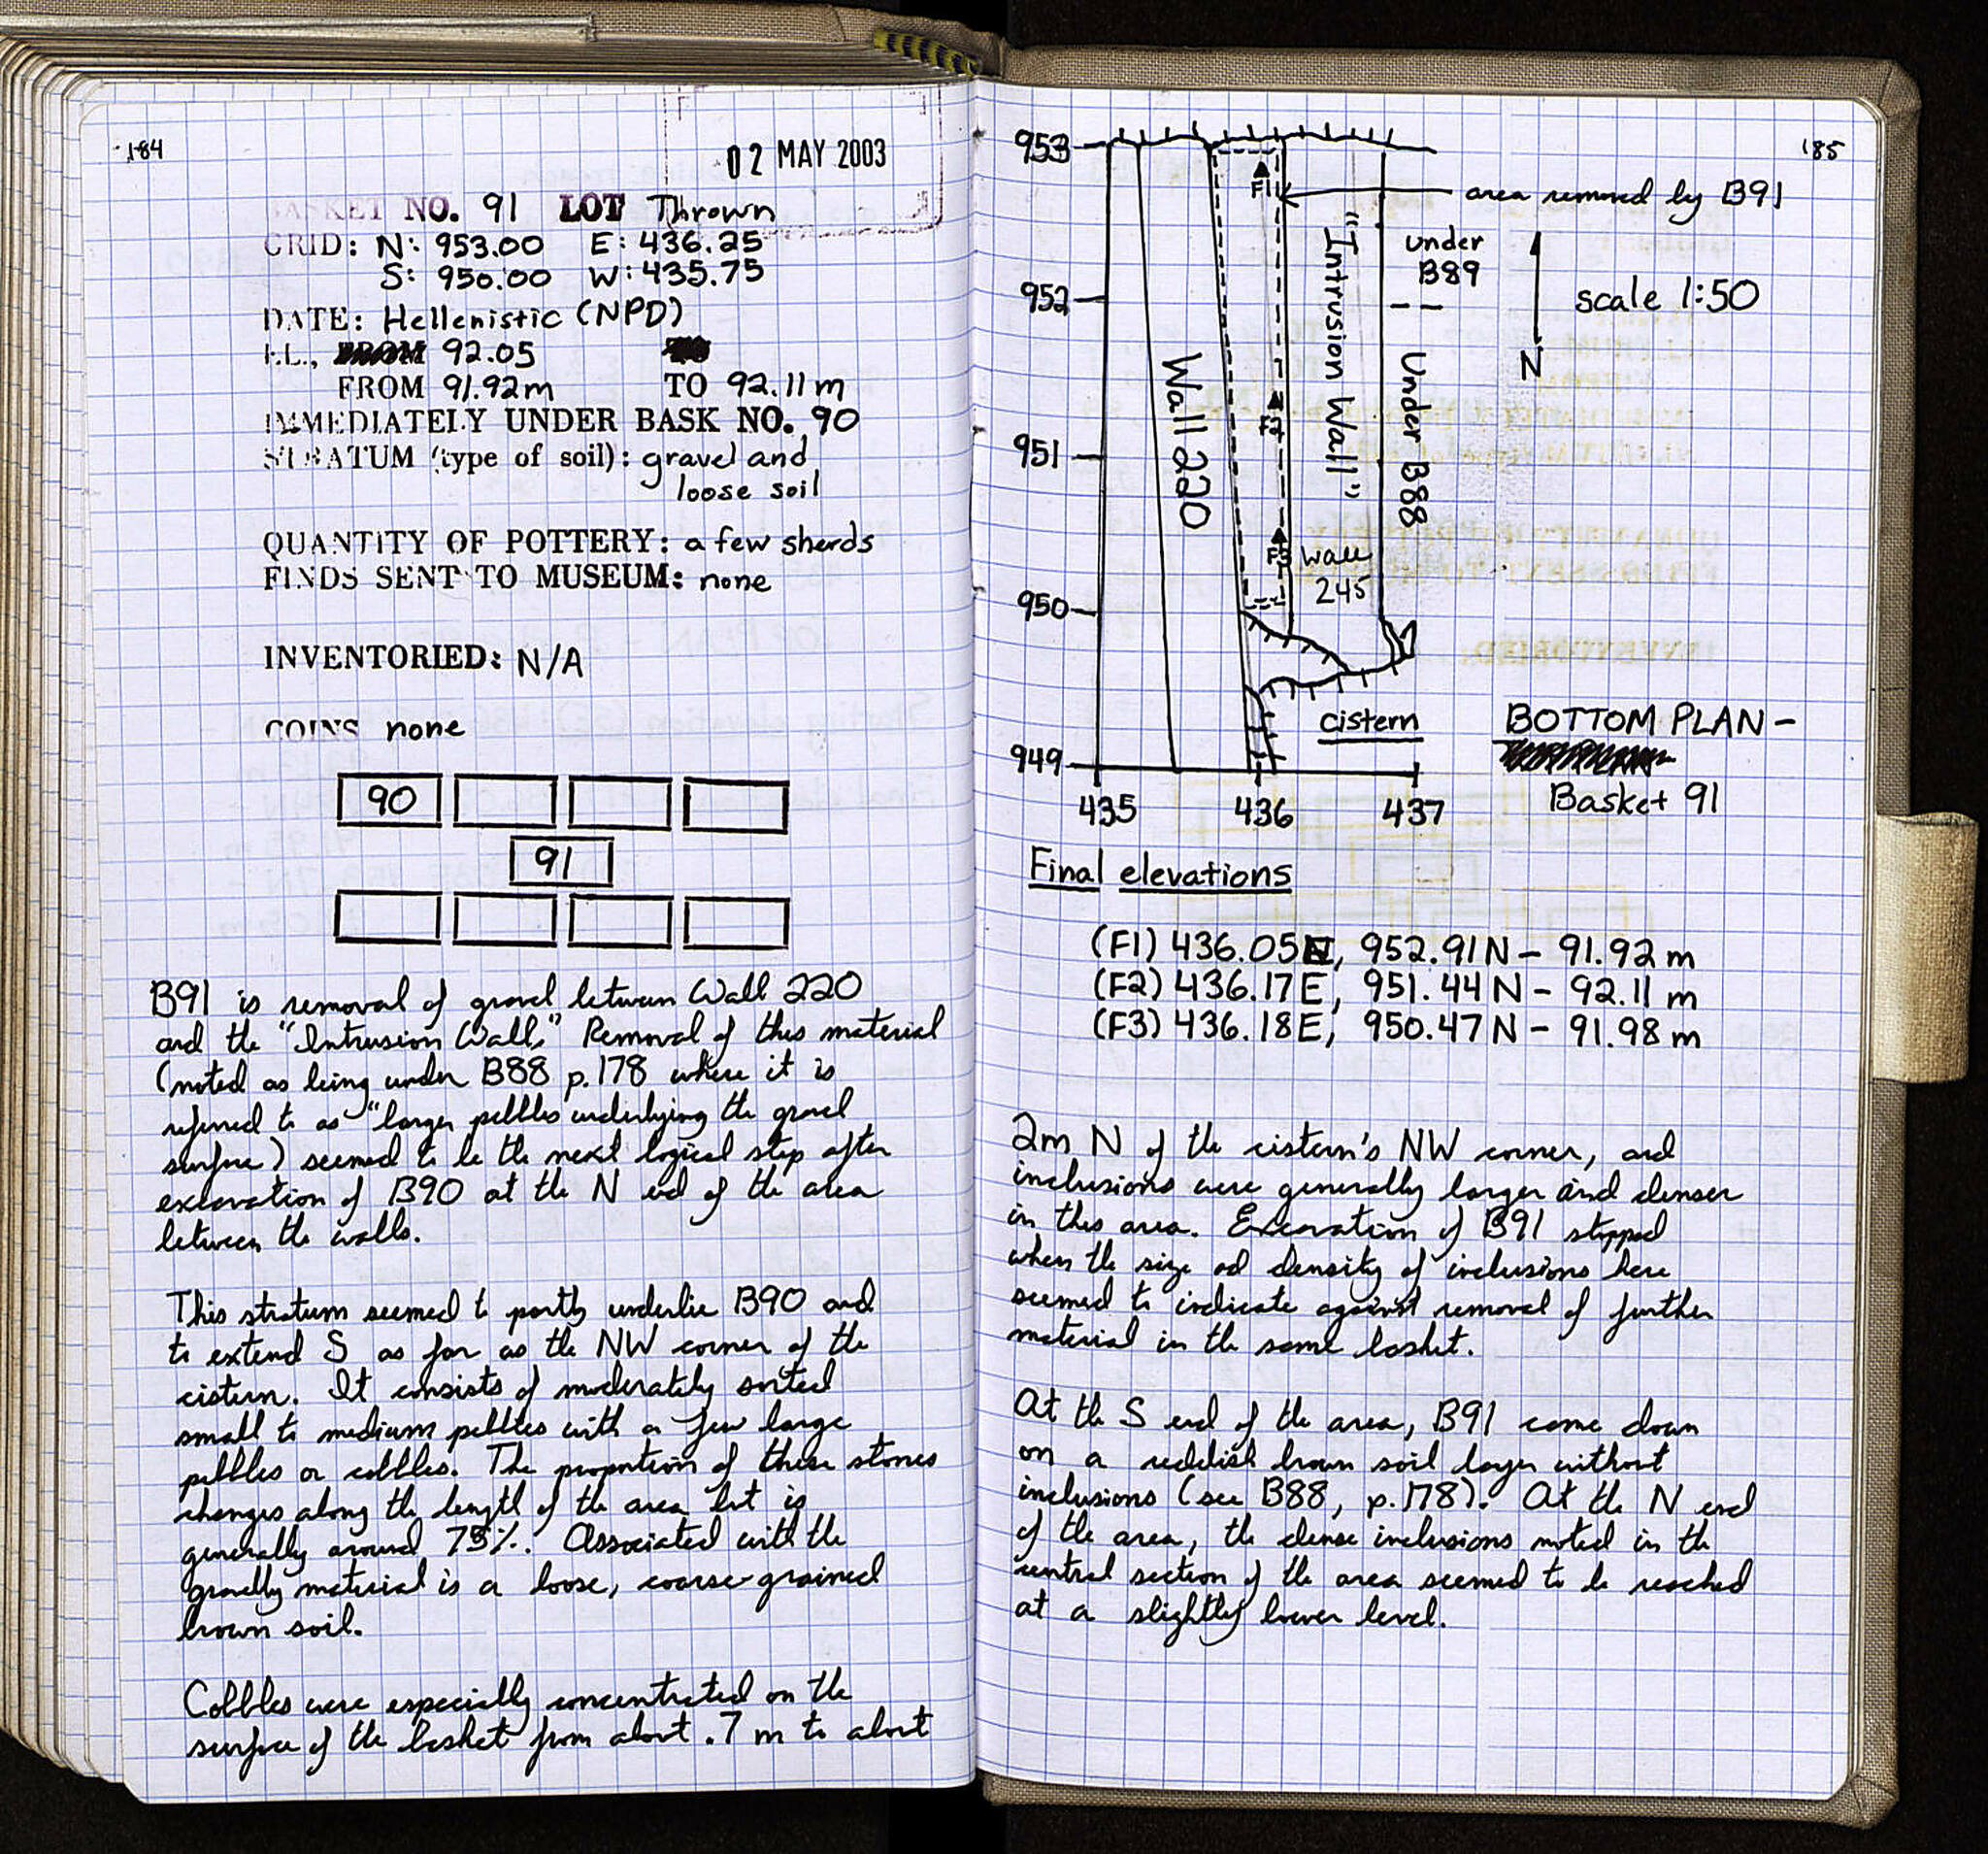 184
02 MAY 2003
BASKET NO. 91 LOT Thrown
GRID: N: 953.00 E: 436.25
S: 950.00 W: 435.75
DATE: Hellenistic (NPD)
EL., 92.05
FROM 91.92m TO 92.11m
IMMEDIATELY UNDER BASK NO. 90
STRATUM (type of soil): gravel and
loose soil
QUANTITY OF POTTERY: a few sherds
FINDS SENT TO MUSEUM: none
INVENTORIED: N/A
COINS none
90
91
B91 is removal of gravel between Wall 220
and the "Intrusion Wall." Removal of this material
(noted as being under B88 p.178 where it is
referred to as "larger pebbles underlying the gravel
surface) seemed to be the next logical step after
excavation of B90 at the N end of the area
between the walls.
This stratum seemed to partly underlie B90 and
to extend S as far as the NW corner of the
cistern. It consists of moderately sorted
small to medium pebbles with a few large
pebbles or cobbles. The proportion of these stones
changes along the length of the area but is
generally around 75%. Associated with the
gravelly material is a loose, coarse-grained
brown soil.
Cobbles were especially concentrated on the
surface of the basket from about .7 m to about
185
953
952
951
950
949
435
436
437
F1
F2
F3
area removed by B91
"Intrusion Wall"
under
B89
Under B88
Wall 220
Wall
245
cistern
N
scale 1:50
BOTTOM PLAN -
Basket 91
Final elevations
(F1) 436.05E, 952.91N - 91.92 m
(F2) 436.17E, 951.44N - 92.11 m
(F3) 436.18E, 950.47N - 91.98 m
2m N of the cistern's NW corner, and
inclusions were generally larger and denser
in this area. Excavation of B91 stopped
when the size and density of inclusions here
seemed to indicate against removal of further
material in the same basket.
At the S end of the area, B91 came down
on a reddish brown soil layer without
inclusions (see B88, p.178). At the N end
of the area, the dense inclusions noted in the
central section of the area seemed to be reached
at a slightly lower level.